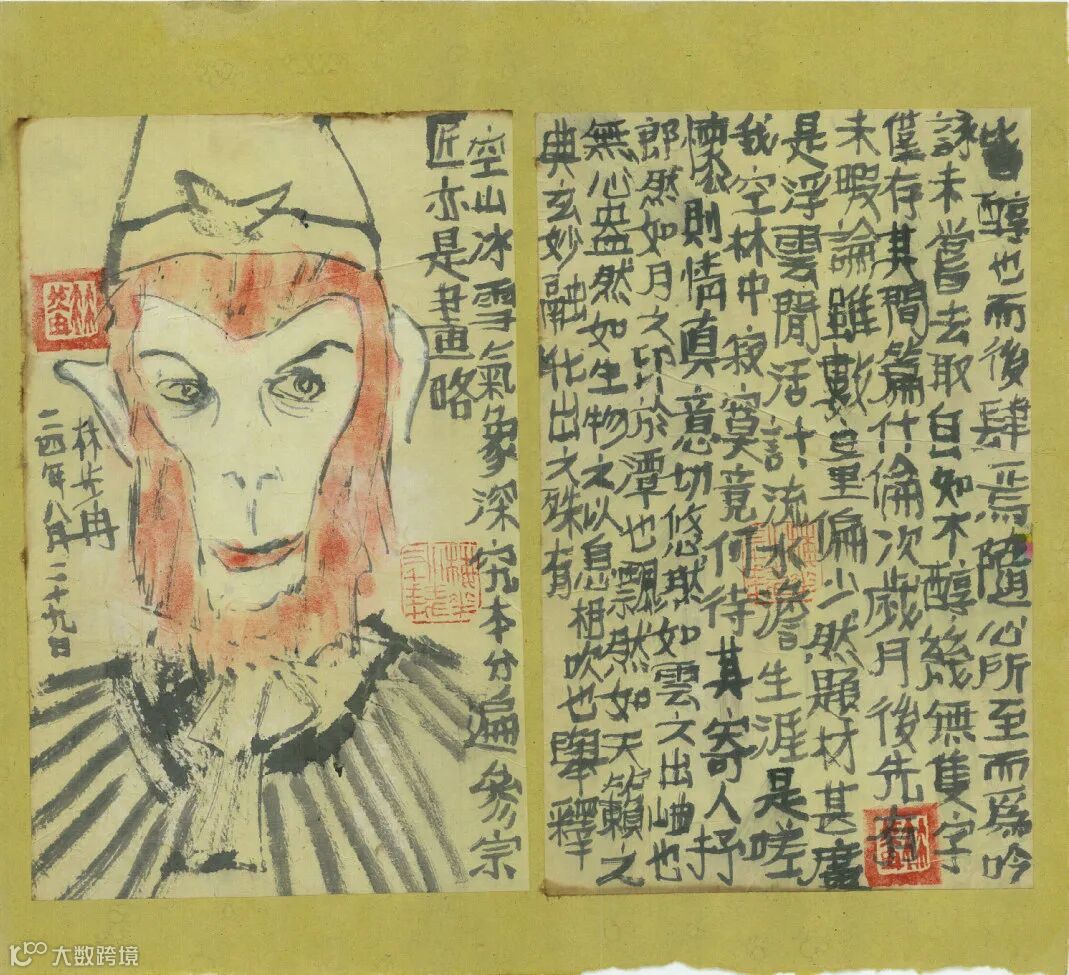 皆醇也而後肆焉隨心所至而為吟
詠未嘗去取自知不醇幾無隻字
僅存其間篇什倫次歲月後先
未暇論雖數量偏少然題材甚廣
是浮雲閒活計流水澹生涯是嗟
我空林中寂寞竟何待其寄人抒
懷則情真意切悠然如雲之出岫也
郎然如月之印於潭也飄然如天籟之
無心盎然如生物之以息相吹也釋
典玄妙融化出之殊有
空山冰雪氣象深究本分遍參宗
匠亦是畫略
二四年八月二十九日
大数跨境